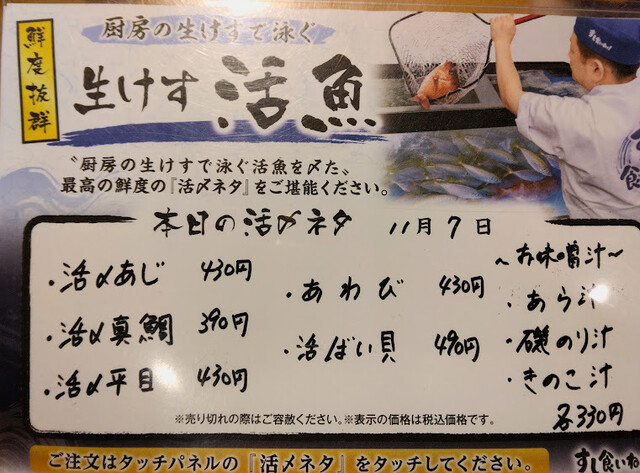 鮮度抜群
厨房の生けすで泳ぐ
生けす 活魚
〝厨房の生けすで泳ぐ活魚を〆た〟
最高の鮮度の『活〆ネタ』をご堪能ください。
本日の活〆ネタ 11月7日
・活〆あじ 430円
・活〆真鯛 390円
・活〆平目 430円
・あわび 430円
・活ばい貝 490円
～お味噌汁～
・あら汁
・磯のり汁
・きのこ汁
各330円
※売り切れの際はご容赦ください。※表示の価格は税込価格です。
ご注文はタッチパネルの『活〆ネタ』をタッチしてください。